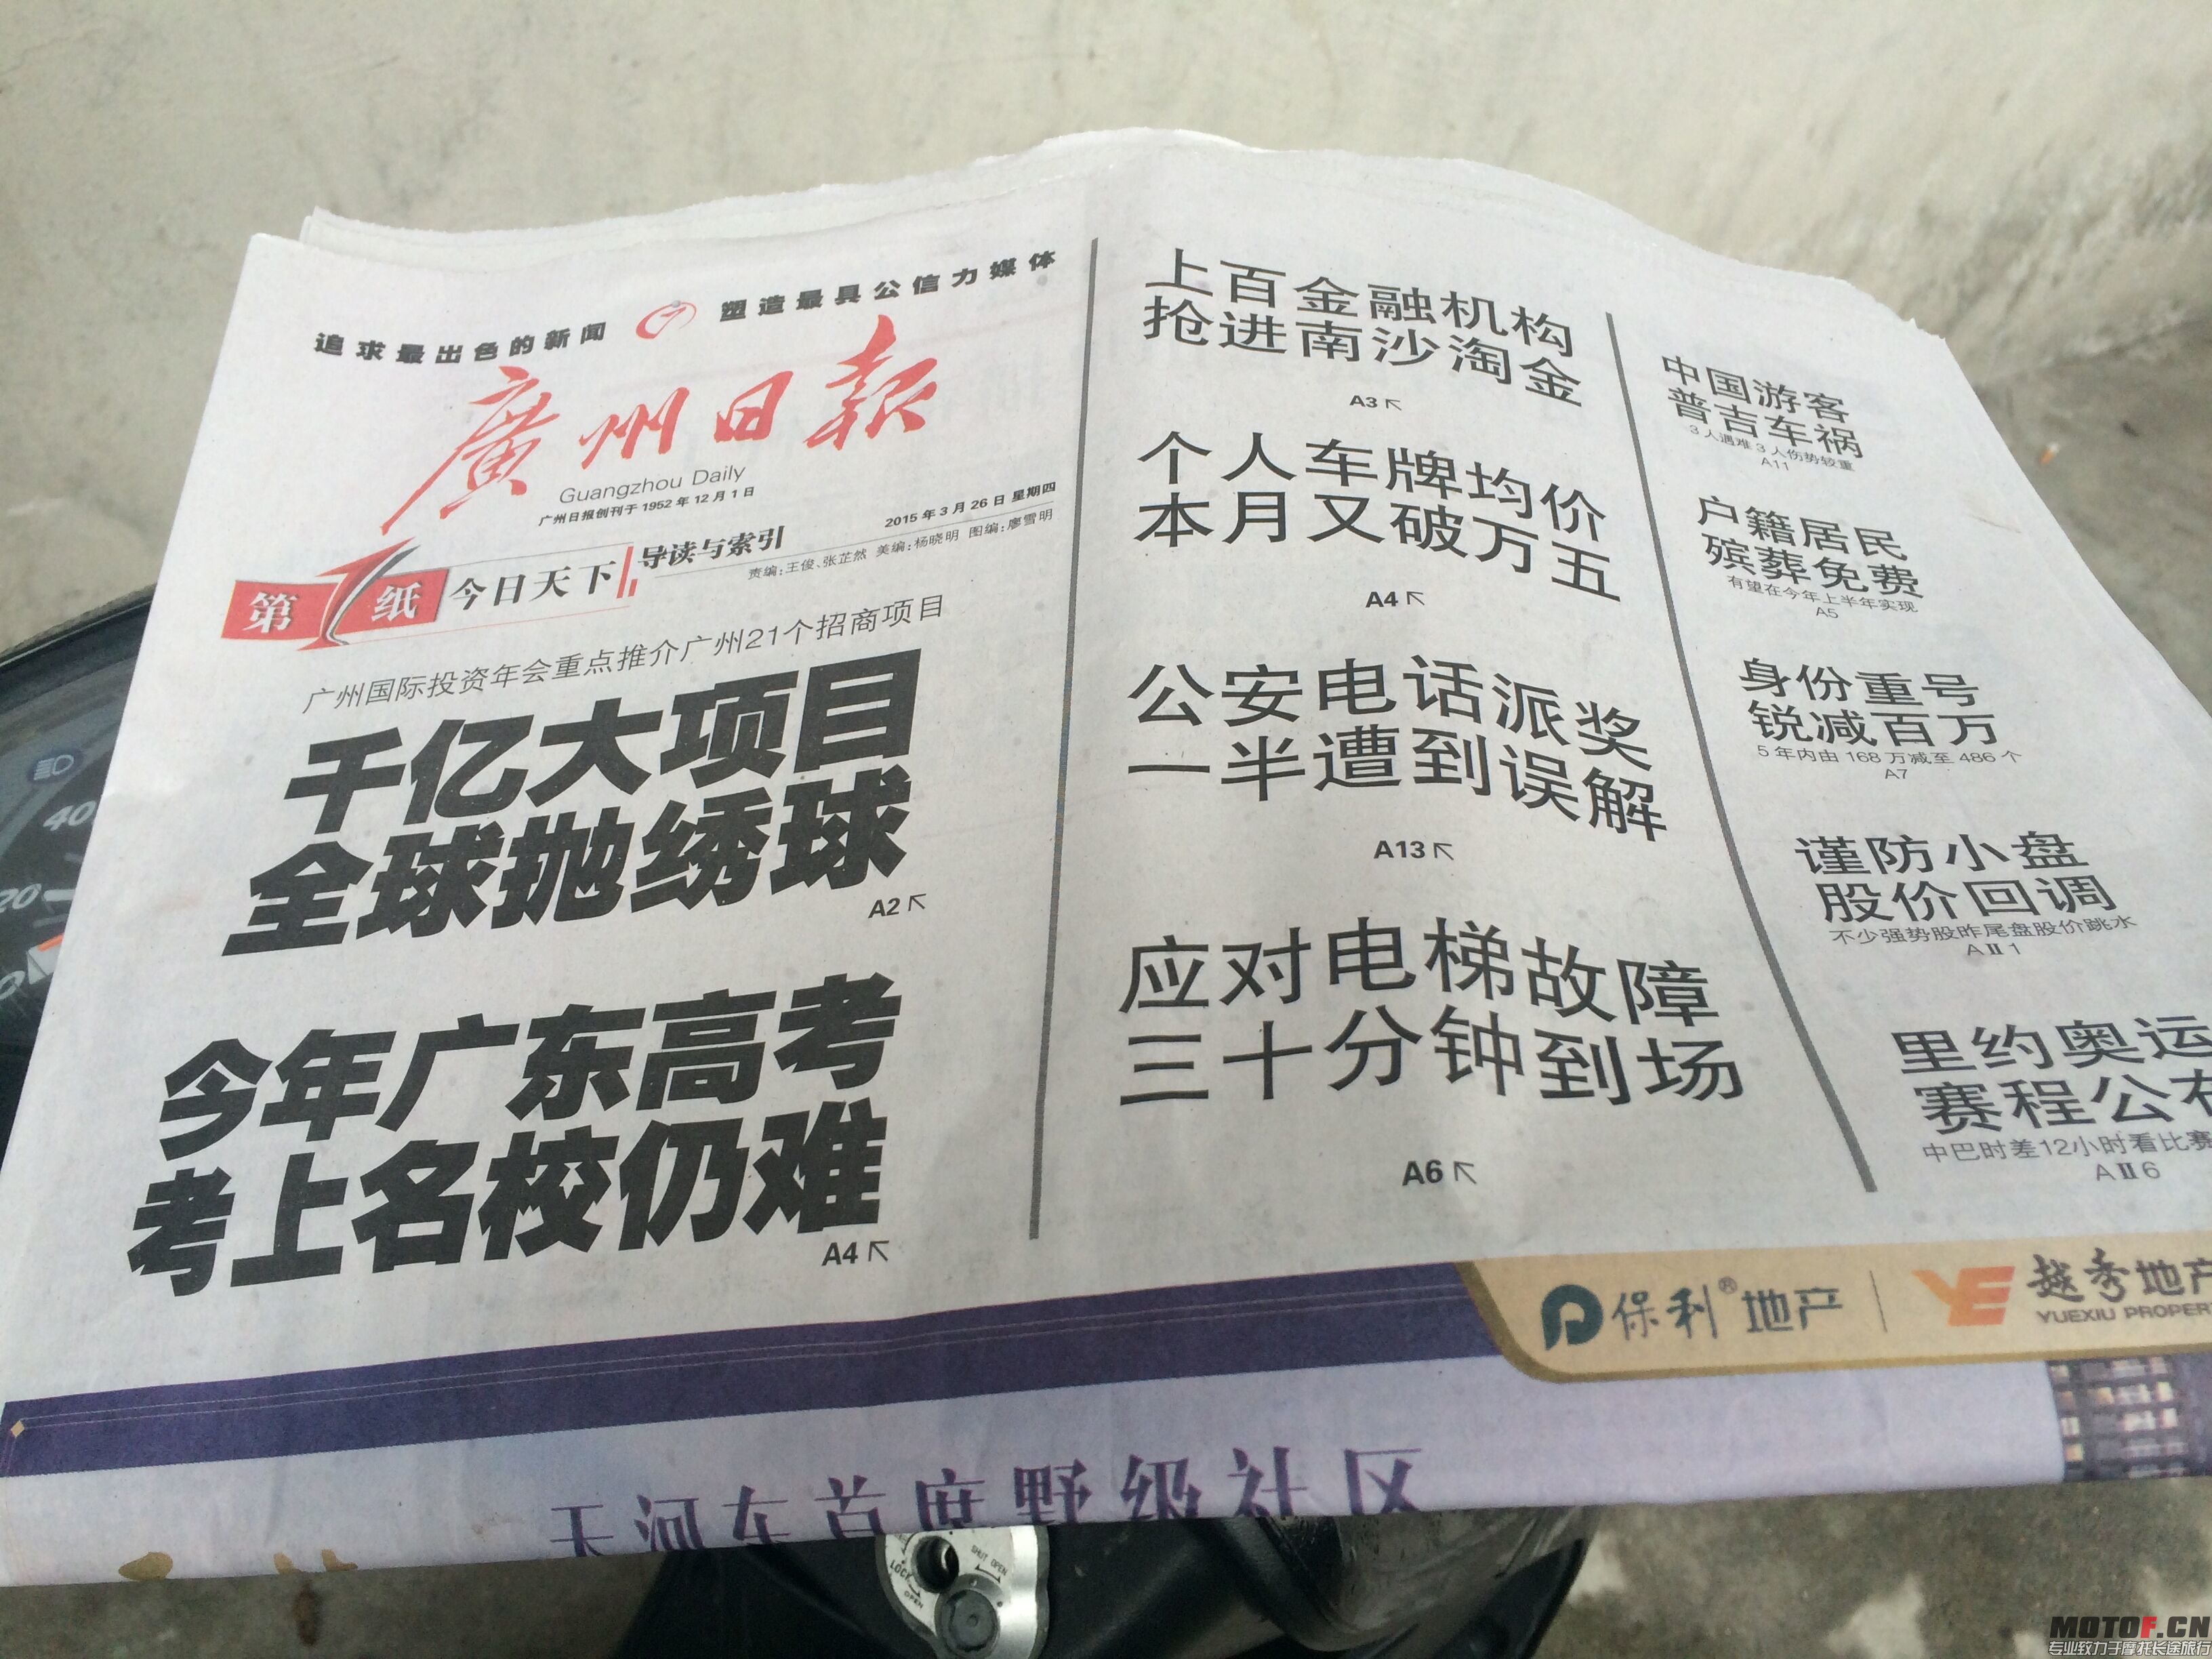 追求最出色的新闻 塑造最具公信力媒体
廣州日報
Guangzhou Daily
广州日报创刊于1952年12月1日
2015年3月26日 星期四
第1纸 今日天下 导读与索引
责编:王俊、张芷然 美编:杨晓明 图编:廖雪明
广州国际投资年会重点推介广州21个招商项目
千亿大项目
全球抛绣球
A2
今年广东高考
考上名校仍难
A4
上百金融机构
抢进南沙淘金
A3
个人车牌均价
本月又破万五
A4
公安电话派奖
一半遭到误解
A13
应对电梯故障
三十分钟到场
A6
中国游客
普吉车祸
3人遇难3人伤势较重
A11
户籍居民
殡葬免费
有望在今年上半年实现
A5
身份重号
锐减百万
5年内由168万减至486个
A7
谨防小盘
股价回调
不少强势股昨尾盘股价跳水
AⅡ1
里约奥运
赛程公布
中巴时差12小时看比赛
AⅡ6
保利®地产
YE 越秀地产
YUEXIU PROPER
天河东首席墅级社区
40
20
0
LOCK
OPEN
SHUT OPEN
MOTOF.CN
专业致力于摩托长途旅行